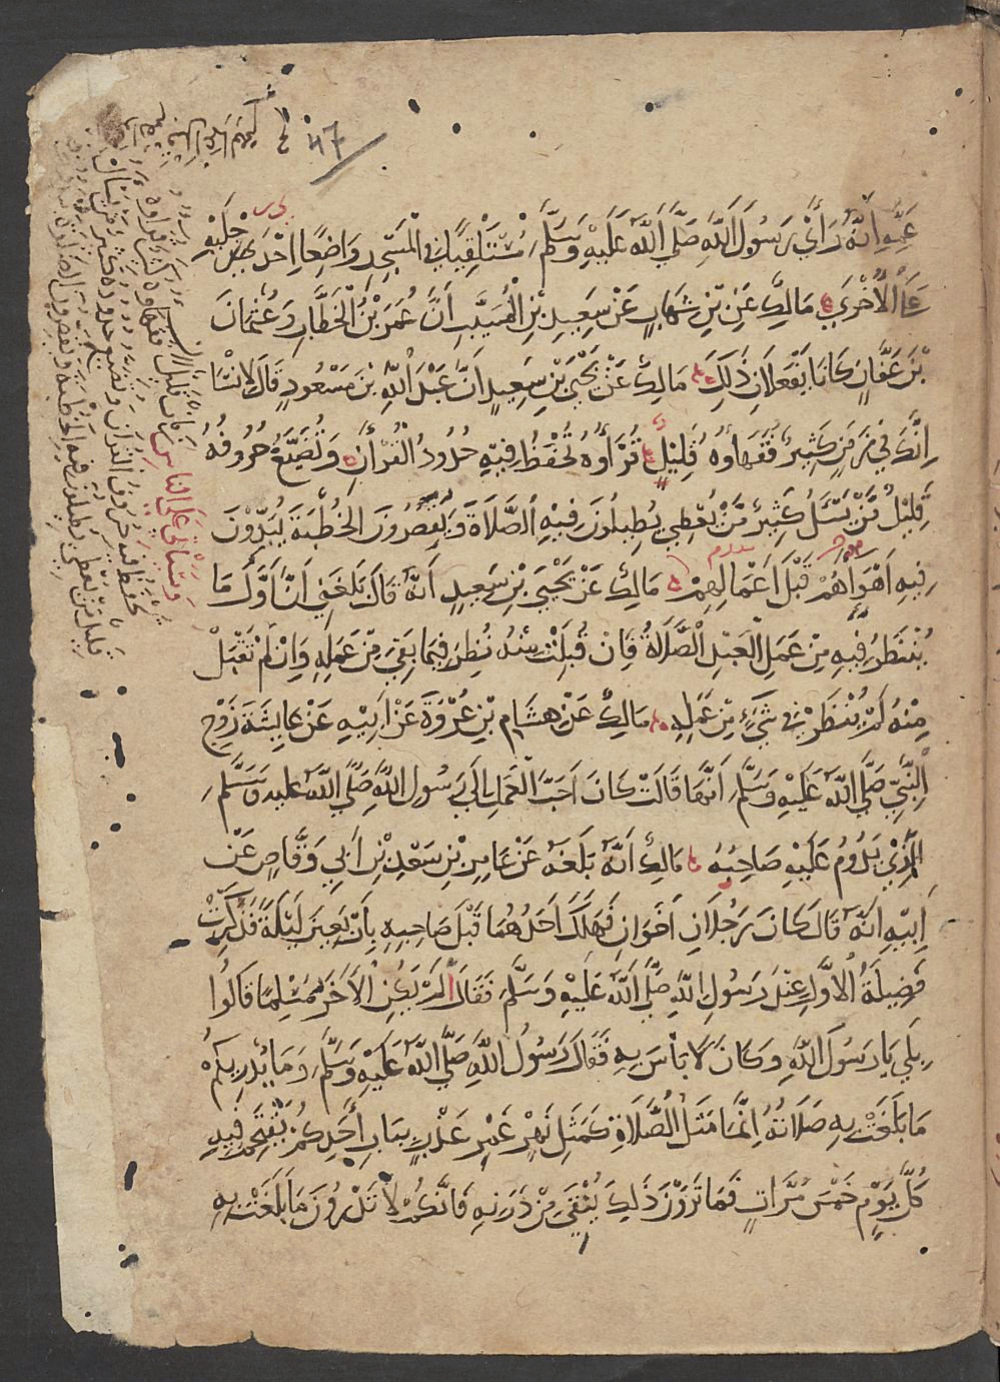 ٤٧
عَمِّهِ اَنَّهُ رَأَىٰ رَسُولَ اللّٰهِ صَلَّى اللّٰهُ عَلَيْهِ وَسَلَّمَ مُسْتَلْقِيًا فِي الْمَسْجِدِ وَاضِعًا اِحْدَى رِجْلَيْهِ
عَلَى الْاُخْرَى مَالِكٌ عَنِ بْنِ شِهَابٍ عَنْ سَعِيدِ بْنِ الْمُسَيَّبِ اَنَّ عُمَرَ بْنَ الْخَطَّابِ وَعُثْمَانَ
بْنَ عَفَّانٍ كَانَا يَفْعَلَانِ ذٰلِكَ مَالِكٌ عَنْ يَحْيَى بْنِ سَعِيدٍ اَنَّ عَبْدَ اللّٰهِ بْنَ مَسْعُودٍ قَالَ لِاِنْسَانٍ
اِنَّكَ فِي زَمَنٍ كَثِيرٌ فُقَهَاؤُهُ قَلِيلٌ قُرَّاؤُهُ تُحْفَظُ فِيهِ حُدُودُ الْقُرْاٰنِ وَتُضَيَّعُ حُرُوفُهُ
قَلِيلٌ مَّنْ يَسْئَلُ كَثِيرٌ مَّنْ يُعْطِي يُطِيلُونَ فِيهِ الصَّلَاةَ وَيَقْصُرُونَ الْخُطْبَةَ يُبَدُّوْنَ
فِيهِ اَهْوَاهُمْ قَبْلَ اَعْمَالِهِمْ مَالِكٌ عَنْ يَحْيَى بْنِ سَعِيدٍ اَنَّهُ قَالَ بَلَغَنِي اَنَّ اَوَّلَ مَا
يُنْظَرُ فِيهِ مِنْ عَمَلِ الْعَبْدِ الصَّلَاةُ فَاِنْ قُبِلَتْ مِنْهُ نُظِرَ فِيمَا بَقِيَ مِنْ عَمَلِهِ وَاِنْ لَمْ تُقْبَلْ
مِنْهُ لَمْ يُنْظَرْ فِي شَيْءٍ مِنْ عَمَلِهِ مَالِكٌ عَنْ هِشَامِ بْنِ عُرْوَةَ عَنْ اَبِيهِ عَنْ عَايِشَةَ زَوْجِ
النَّبِيِّ صَلَّى اللّٰهُ عَلَيْهِ وَسَلَّمَ اَنَّهَا قَالَتْ كَانَ اَحَبَّ الْعَمَلِ اِلَى رَسُولِ اللّٰهِ صَلَّى اللّٰهُ عليه وَسَلَّمَ
الَّذِيْ يَدُومُ عَلَيْهِ صَاحِبُهُ مَالِكٌ اَنَّهُ بَلَغَهُ عَنْ عَامِرِ بْنِ سَعْدِ بْنِ اَبِي وَقَّاصٍ عَنْ
اَبِيهِ اَنَّهُ قَالَ كَانَ رَجُلَانِ اَخَوَانِ فَهَلَكَ اَحَدُهُمَا قَبْلَ صَاحِبِهِ بِاَرْبَعِينَ لَيْلَةً فَذُكِرَتْ
فَضِيلَةُ الْاَوَّلِ عِنْدَ رَسُولِ اللّٰهِ صَلَّى اللّٰهُ عَلَيْهِ وَسَلَّمَ فَقَالَ اَلَمْ يَكُنِ الْاٰخَرُ مُسْلِمًا قَالُوا
بَلَى يَا رَسُولَ اللّٰهِ وَكَانَ لَا بَأْسَ بِهِ فَقَالَ رَسُولُ اللّٰهِ صَلَّى اللّٰهُ عَلَيْهِ وَسَلَّمَ وَمَا يُدْرِيكُمْ
مَا بَلَغَتْ بِهِ صَلَاتُهُ اِنَّمَا مَثَلُ الصَّلَاةِ كَمَثَلِ نَهْرٍ غَمْرٍ عَذْبٍ بِبَابِ اَحَدِكُمْ يَقْتَحِمُ فِيهِ
كُلَّ يَوْمٍ خَمْسَ مَرَّاتٍ فَمَا تَرَوْنَ ذٰلِكَ يُبْقِي مِنْ دَرَنِهِ فَاِنَّكُمْ لَا تَدْرُونَ مَا بَلَغَتْ بِهِ
وَسَيَأْتِي عَلَى النَّاسِ زَمَانٌ قَلِيلٌ